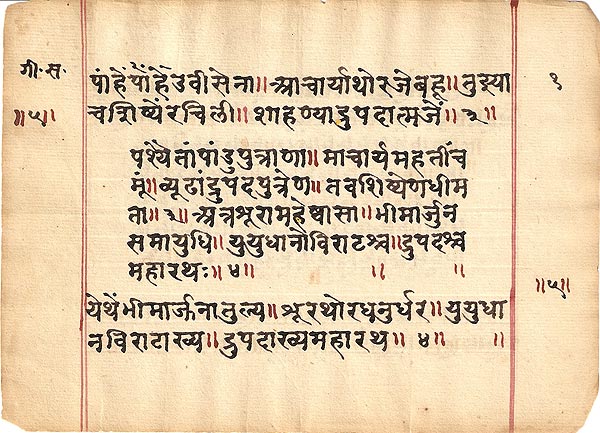 गी. स.
१
पांहें पांहें उवी सेना॥ आचार्या थोरजे बहू॥ तुझ्या
च शिष्यें रचिली॥ शाहण्या द्रुपदात्मजें॥ ३॥
॥५॥
पश्यैतां पांडुपुत्राणा॥ माचार्य महतीं च
मूं॥ व्यूढां द्रुपदपुत्रेण॥ तव शिष्येण धीम
ता॥ ३॥ अत्र श्रूरा महेष्वासा॥ भीमार्जुन
समायुधि॥ युयुधानो विराटश्च॥ द्रुपदश्च
महारथः॥ ४॥
॥५॥
येथें भीमार्जुना तुल्य॥ श्रूर थोर धनुर्धर॥ युयुधा
न विराटाख्य॥ द्रुपदाख्य महारथ॥ ४॥